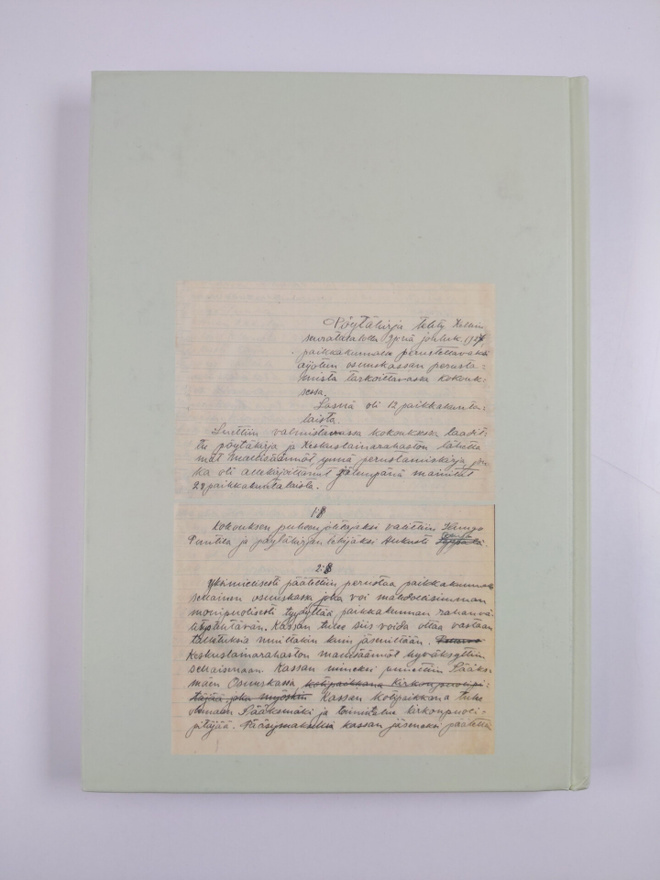 Pöytäkirja tehty
seuratalolla 9 pnä
paikkakunnalla perustettavaksi
aijotun osuuskassan perusta-
mista tarkoittavassa kokouk-
sessa.
Läsnä oli 12 paikkakunta-
laista.
Luettiin valmistavassa kokouksessa laadit-
tu pöytäkirja ja Keskuslainarahaston lähettä-
mät mallisäännöt ynnä perustamiskirja jon-
ka oli allekirjoittanut mainitut
22 paikkakuntalaista.
1§
Kokouksen puheenjohtajaksi valittiin
Punttila ja pöytäkirjan tekijäksi Aukusti
2§
Yksimielisesti päätettiin perustaa paikkakunnalle
sellainen osuuskassa joka voi mahdollisimman
monipuolisesti tyydyttää paikkakunnan rahanvä-
Kassan tulee siis voida ottaa vastaan
talletuksia muiltakin kuin jäseniltään.
Keskuslainarahaston mallisäännöt hyväksyttiin
sellaisinaan Kassan nimeksi pantiin Sääks-
mäen Osuuskassa kotipaikkana Kirkonpuoli
joka myöskin Kassan kotipaikkana tulee
olemaan Sääksmäki ja toimialue kirkonpuoli-
pitäjää. Pääsymaksuksi kassan jäseneksi päätettiin